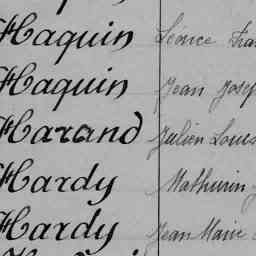 Haquin Léonce
Haquin Jean
Harand Julien Louis
Hardy Mathurin
Hardy Jean Marie